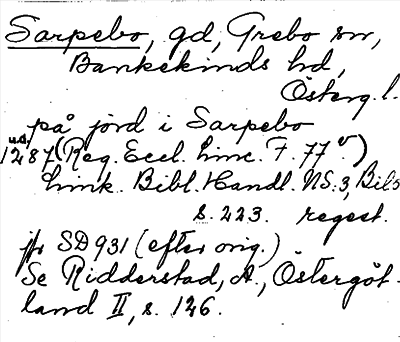 Sarpebo, gd, Grebo sn,
Bankekinds hd,
Österg. l.
på jord i Sarpebo
u.å.
1287 (Reg. Eccl. Linc. F. 77 v)
Link. Bibl. Handl. NS: 3, Bil 5
s. 223. regest.
jfr SD 931 (efter orig.)
Se Ridderstad, A., Östergöt-
land II, s. 126.